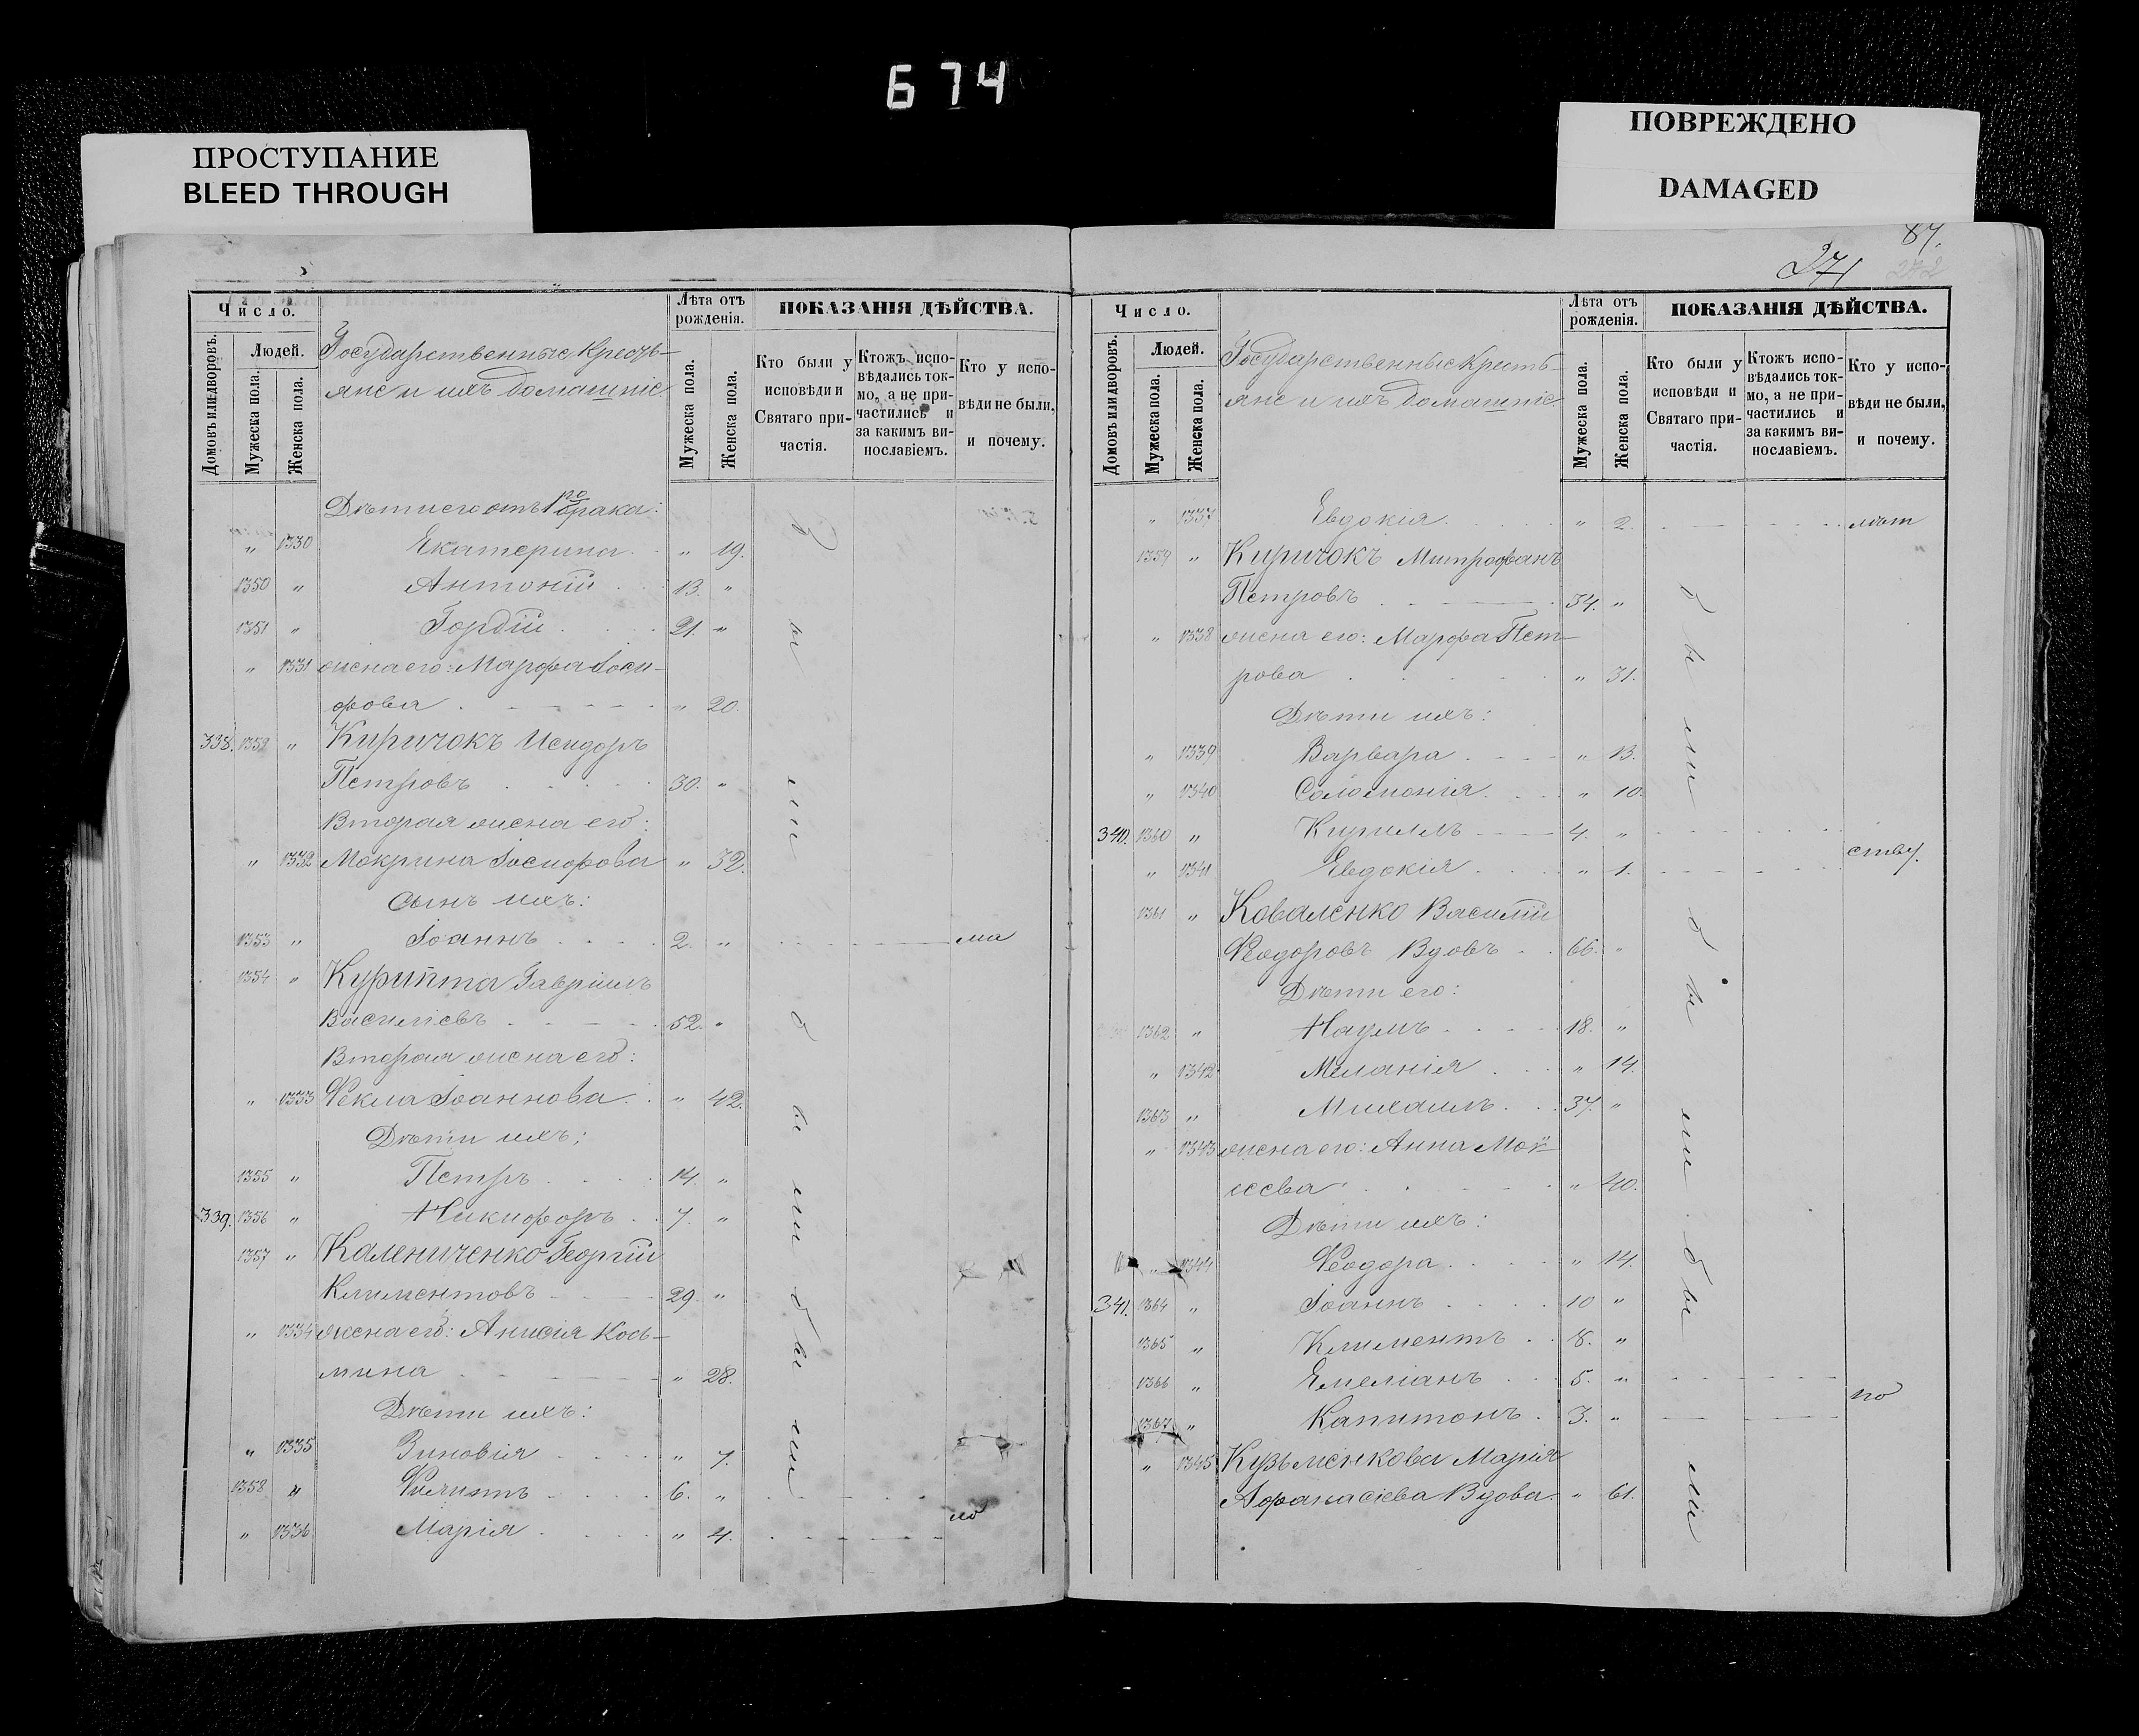 674
ПРОСТУПАНИЕ
BLEED THROUGH
ПОВРЕЖДЕНО
DAMAGED
87.
271
272
Число.
Лѣта отъ рожденія.
ПОКАЗАНІЯ ДѢЙСТВА.
Домовъ или дворовъ.
Людей.
Мужеска пола.
Женска пола.
Государственные Кресть-
яне и ихъ домашніе.
Мужеска пола.
Женска пола.
Кто были у исповѣди и Святаго при-частія.
Ктожъ испо-вѣдались ток-мо, а не при-частились и за какимъ ви-нославіемъ.
Кто у испо-вѣди не были, и почему.
Дѣти его отъ 1го брака:
" 1330 Екатерина " 19.
1350 " Антоній 13. "
1351 " Гордій 21. "
" 1331 жена его: Марфа Іоси-
фова " 20.
338. 1352 " Киричокъ Исидоръ
Петровъ 30. "
Вторая жена его:
" 1332 Мокрина Іосифова " 32.
Сынъ ихъ:
1353 " Іоаннъ 2. " ма
1354 " Курипта Гавріилъ
Василіевъ 52. "
Вторая жена его:
" 1333 Ѳекла Іоаннова " 42.
Дѣти ихъ:
1355 " Петръ 14. "
339. 1356 " Никифоръ 7. "
1357 " Калениченко Георгій
Климентовъ 29. "
" 1334 жена его: Анисія Кось-
мина " 28.
Дѣти ихъ:
" 1335 Зиновія " 7.
1358 " Филиппъ 6. "
по
" 1336 Марія " 4.
были были были
Число.
Лѣта отъ рожденія.
ПОКАЗАНІЯ ДѢЙСТВА.
Домовъ или дворовъ.
Людей.
Мужеска пола.
Женска пола.
Государственные Кресть-
яне и ихъ домашніе.
Мужеска пола.
Женска пола.
Кто были у исповѣди и Святаго при-частія.
Ктожъ испо-вѣдались ток-мо, а не при-частились и за какимъ ви-нославіемъ.
Кто у испо-вѣди не были, и почему.
" 1337 Евдокія " 2. лѣт
1359 " Киричокъ Митрофанъ
Петровъ 34. "
" 1338 жена его: Марфа Пет-
рова " 31.
Дѣти ихъ:
" 1339 Варвара " 13.
" 1340 Соломонія " 10.
340. 1360 " Кириллъ 4. "
ству.
" 1341 Евдокія " 1.
1361 " Коваленко Василій
Ѳеодоровъ Вдовъ 66. "
Дѣти его:
1362 " Наумъ 18. "
" 1342 Меланія " 14.
1363 " Михаилъ 37. "
" 1343 жена его: Анна Мои-
сеева " 40.
Дѣти ихъ:
" 1344 Ѳеодора " 14.
341. 1364 " Іоаннъ 10 "
1365 " Климентъ 8. "
1366 " Емеліанъ 5. "
по
1367 " Капитонъ 3. "
" 1345 Кузьменкова Марія
Афанасіева Вдова " 61.
были были были